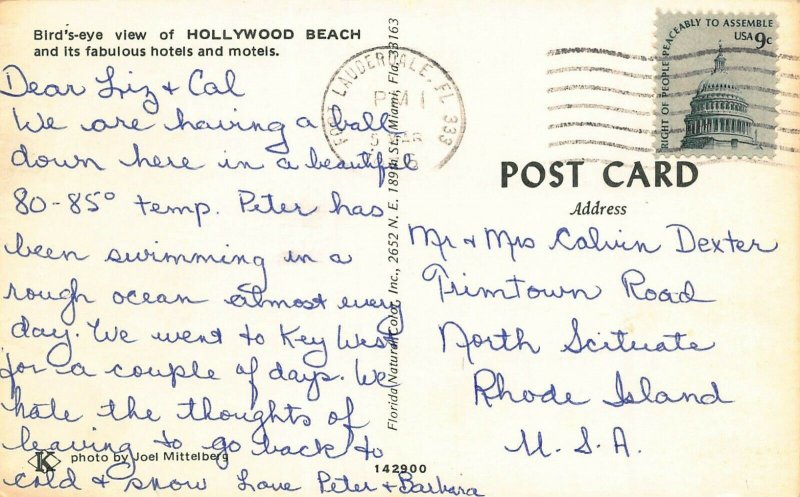 Bird's-eye view of HOLLYWOOD BEACH
and its fabulous hotels and motels.
Dear Liz + Cal
We are having a ball
down here in a beautiful
80-85° temp. Peter has
been swimming in a
rough ocean almost every
day. We went to Key West
for a couple of days. We
hate the thoughts of
leaving to go back to
cold & snow Love Peter + Barbara
K
photo by Joel Mittelberg
Florida Natural Color, Inc., 2652 N. E. 189th St., Miami, Fla. 33163
142900
FORT LAUDERDALE, FL 333
PM 1
RIGHT OF PEOPLE PEACEABLY TO ASSEMBLE
USA 9c
POST CARD
Address
Mr + Mrs Calvin Dexter
Trimtown Road
North Scituate
Rhode Island
U. S. A.